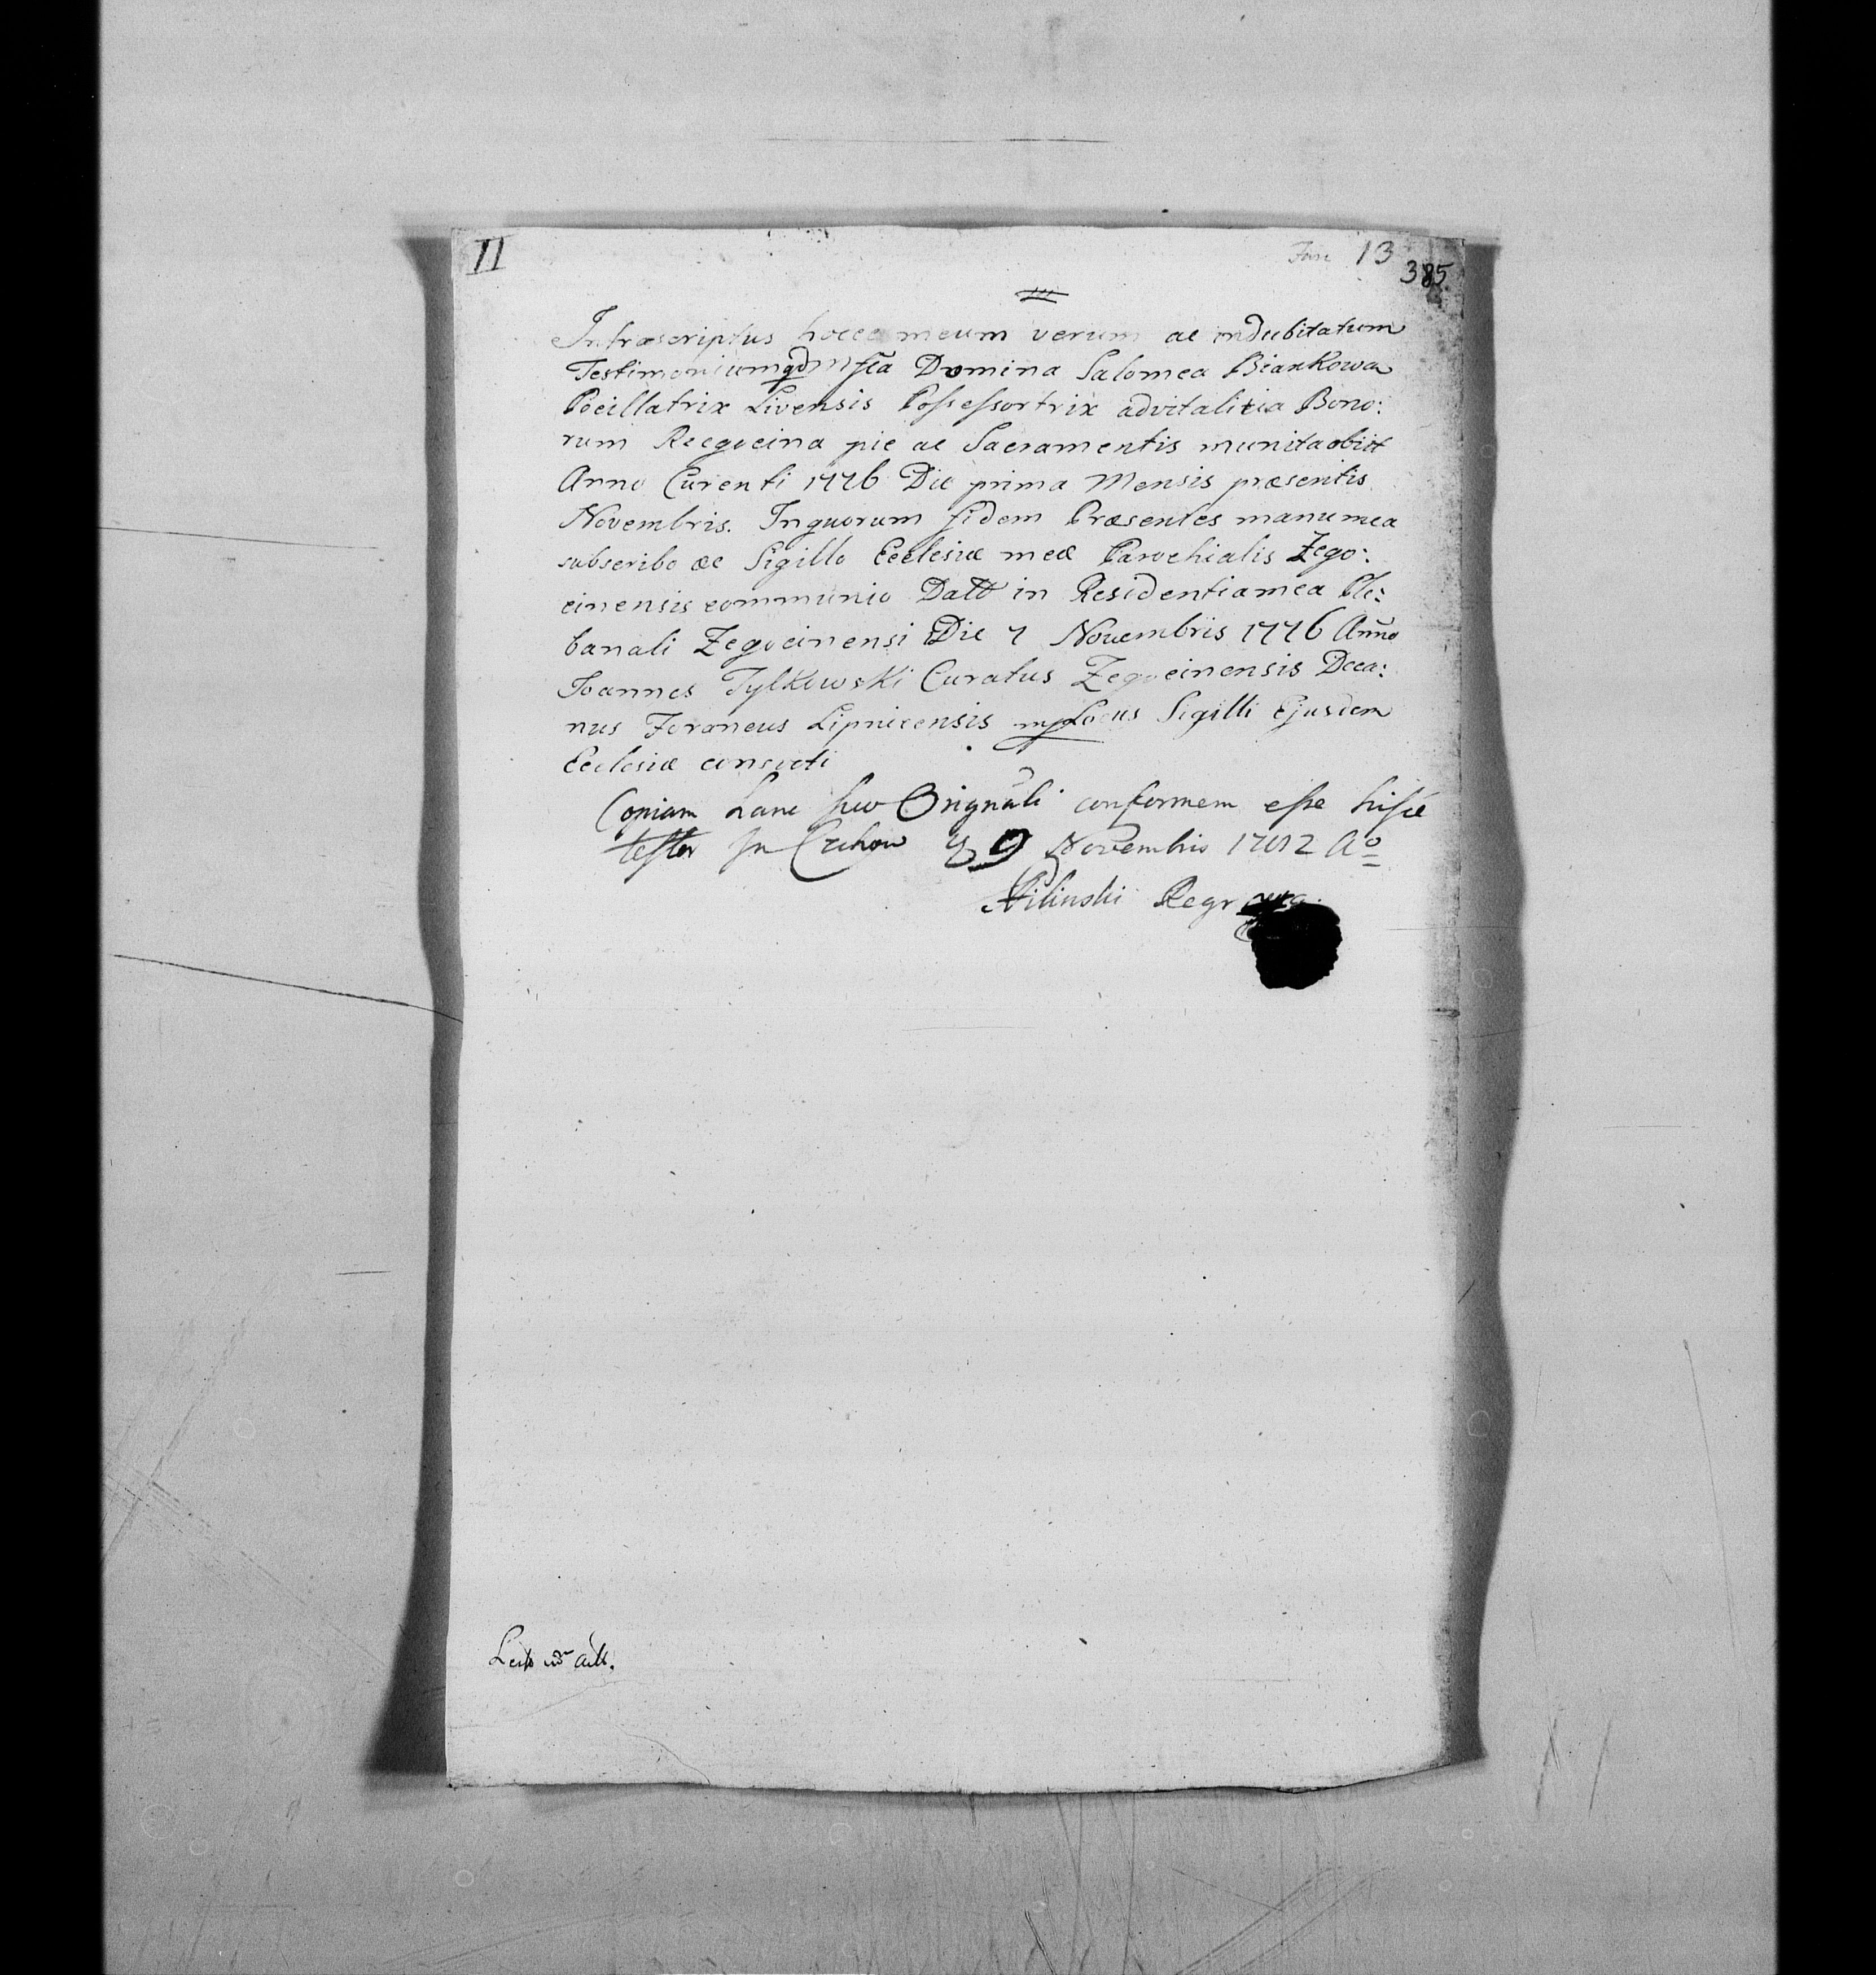 II
13
385
Intrascriptus hocce meum verum ac indubitatum
Testimonium qd Mfca Domina Salomea Biankowa
Pocillatrix Livensis Possessortrix advitalitia Bono:
rum Rzegocina pie ac Sacramentis munita obiit
Anno Curenti 1776 Die prima Mensis præsentis
Novembris. In quorum fidem Præsentes manu mea
subscribo ac Sigillo Ecclesiæ meæ Parochialis Zego:
cinensis communio Datt in Residentia mea Ple:
banali Zegocinensi Die 7 Novembris 1776 Anno
Joannes Tylkowski Curatus Zegocinensis Deca:
nus Foraneus Lipnicensis mp Locus Sigilli Ejusdem
Ecclesiæ consveti
Copiam hanc suo Orignali conformem esse hisce
testor In Czchow 9 Novembris Ao
Pilinski Regr